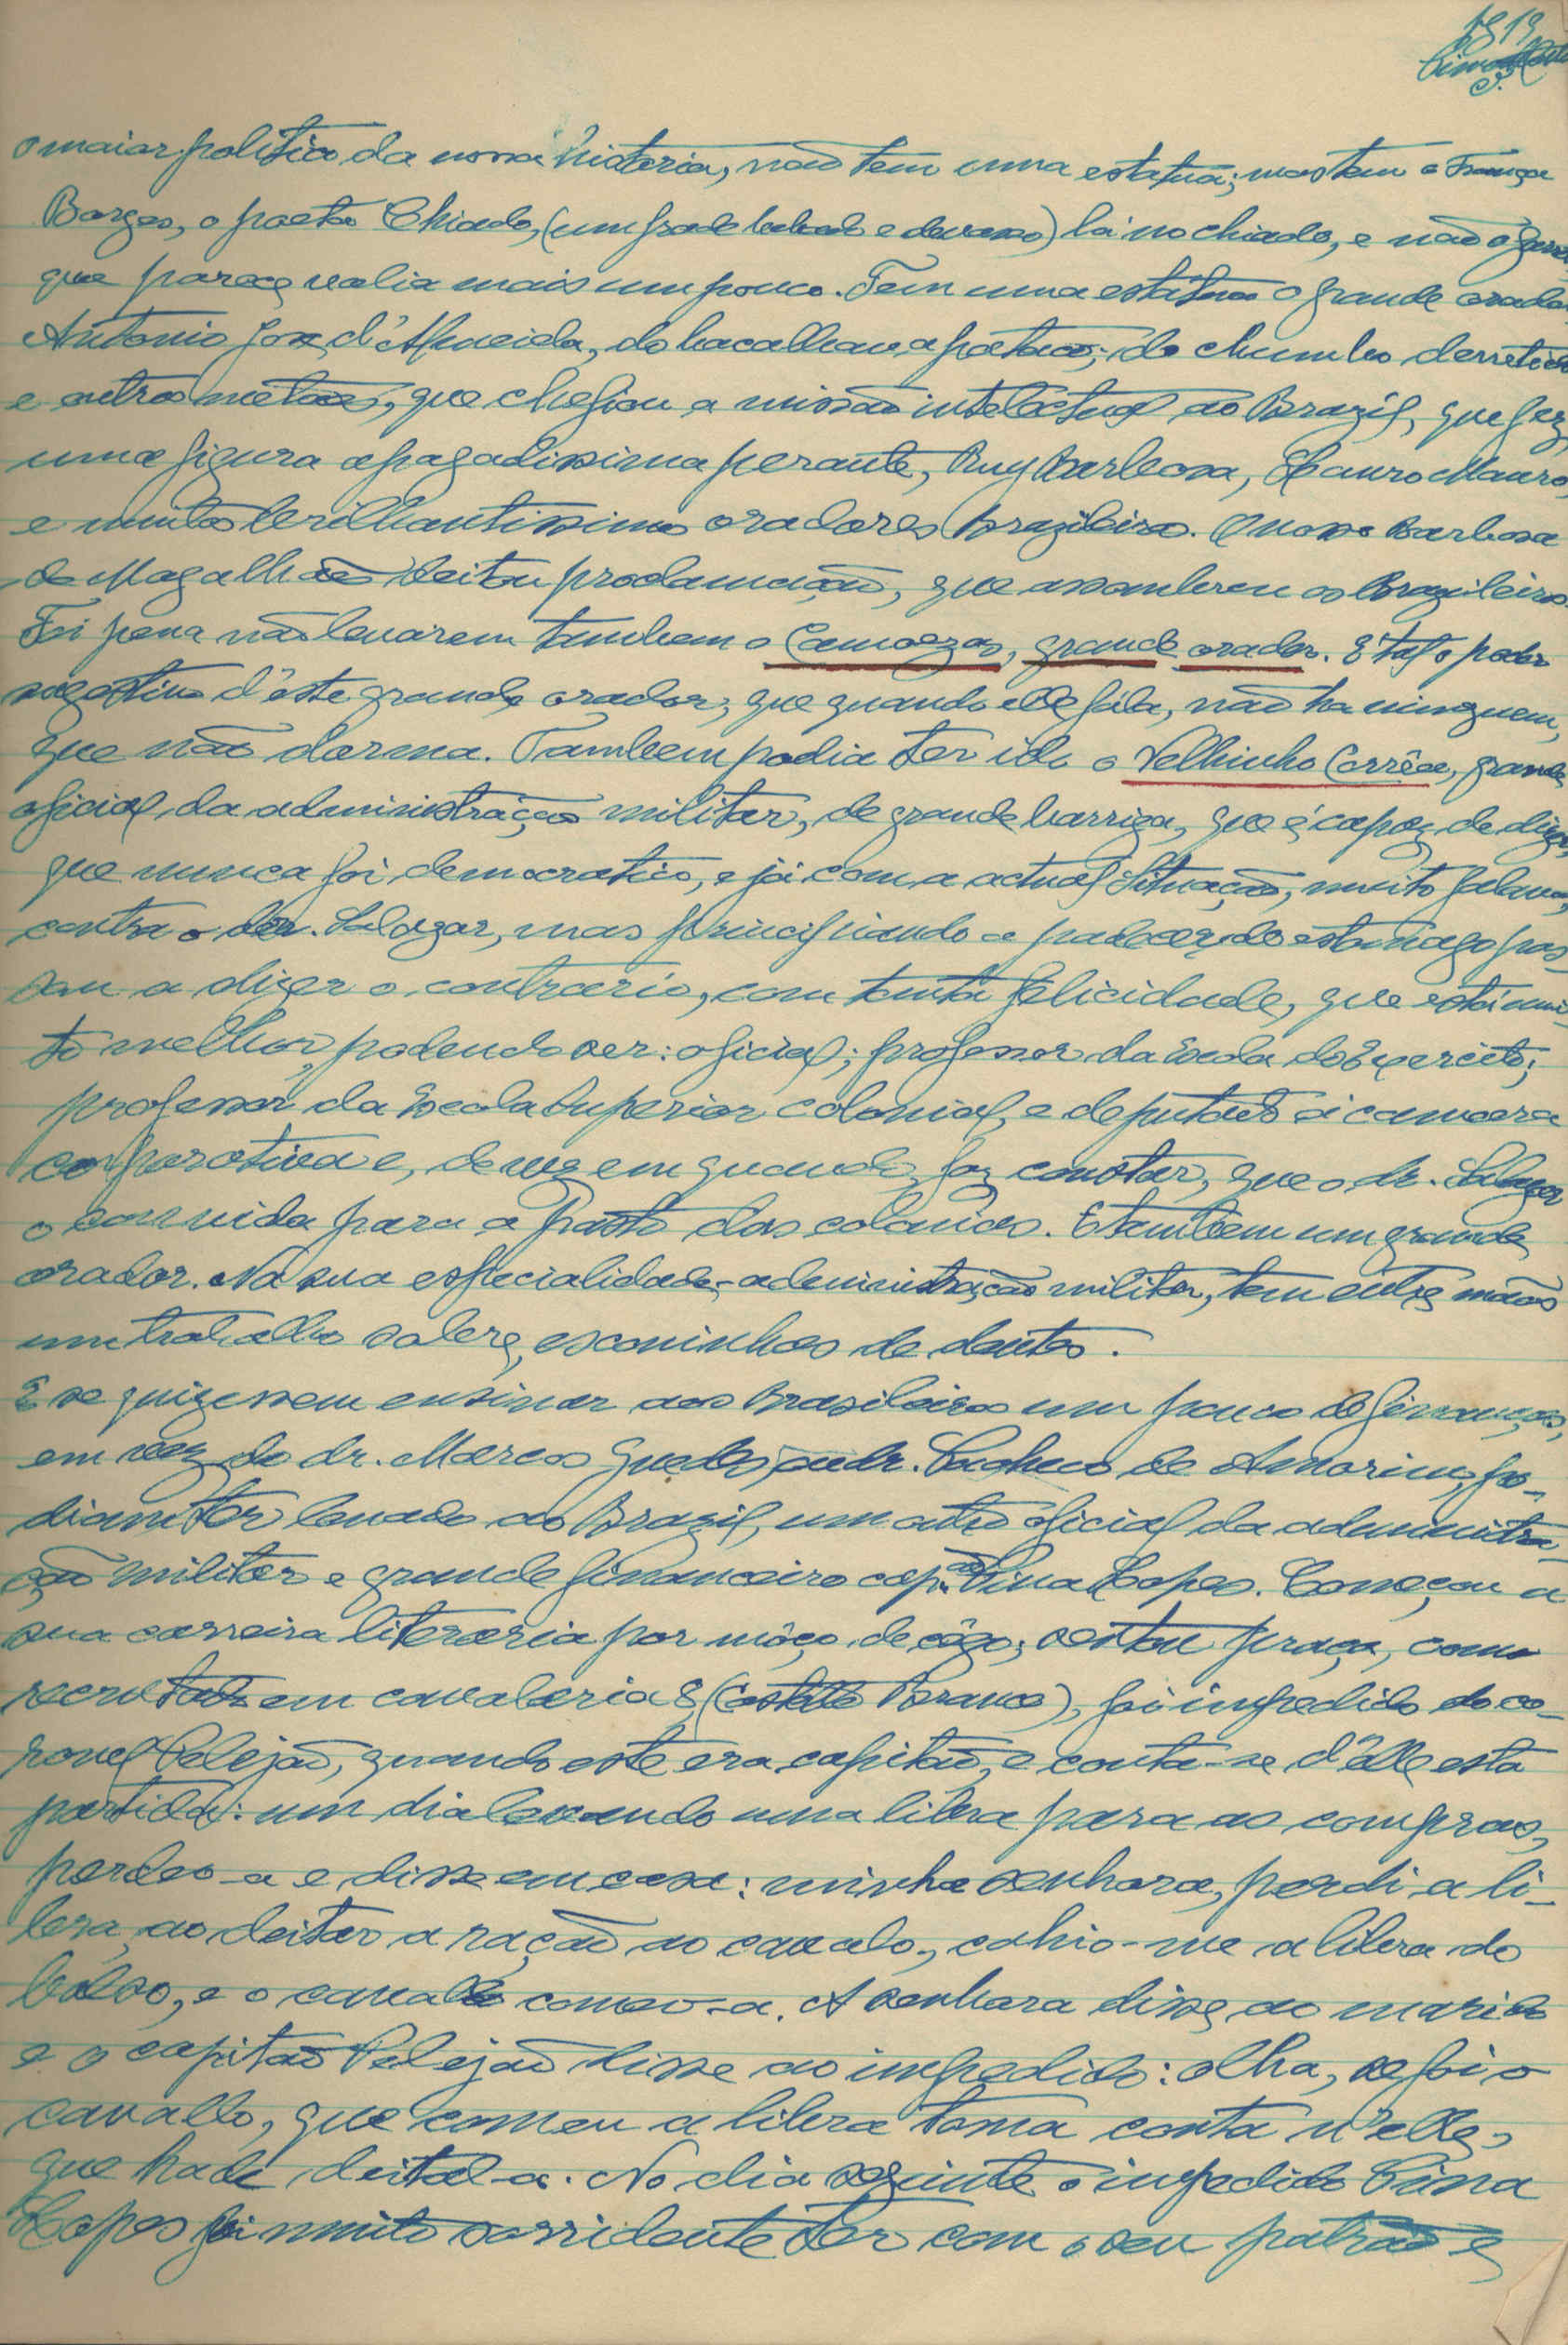 19
o maior politico da nossa historia, não tem uma estatua; mas tem o França
Borges, o poeta Chiado, (um frade bebado e devasso) lá no chiado, e não o
que parece valia mais um pouco. Tem uma estátua o grande orador
Antonio José d'Almeida, do bacalhau a pataco; do chumbo derretido
e outros metaes, que chefiou a missão intelectual ao Brazil, que fez
uma figura apagadissima perante, Ruy Barbosa, Lauro Mauro
e muitos brilhantissimos oradores brazileiros. O nosso Barbosa
de Magalhães deitou proclamação, que assombrou os Brazileiros
Foi pena não levarem tambem o Camoezas, grande orador. É tal o poder
sugestivo d'este grande orador, que quando elle fála, não ha ninguem,
que não dorma. Tambem podia ter ido o Velhinho Corrêa, grande
oficial da administração militar, de grande barriga, que é capaz de dizer,
que nunca foi democratico, e já com a actual situação, muito falava,
contra o dr. Salazar, mas principiando a padecer do estomago pas-
sou a dizer o contrario, com tanta felicidade, que está mui-
to melhor, podendo ser: oficial; professor da Escola do Exercito;
professor da Escola Superior colonial, e deputado á camara
corporativa e, de vez em quando, faz constar, que o dr. Salazar
o convida para a Pasta das colonias. E tambem um grande
orador. Na sua especialidade, administração militar, tem entre mãos
um trabalho sobre, escovinhas de dentes.
E se quizessem ensinar aos Brasileiros um pouco de finanças,
em vez do dr. Marcos Guedes, ou dr. Pacheco de Amorim, po-
diam ter levado ao Brazil, um outro oficial da administra-
ção militar e grande financeiro cap.ão Pina Lopes. Começou a
sua carreira literaria por môço de cégo; sentou praça, como
recrutado em cavalaria 8, (Castello Branco), foi impedido do co-
ronel Pelejão, quando este era capitão, e conta-se d'elle esta
partida: um dia levando uma libra para as compras,
perdeo-a e disse em casa: minha senhora, perdi a li-
bra, ao deitar a ração ao cavalo, cahio-me a libra do
bolso, e o cavallo comeu-a. A senhora disse ao marido
e o capitão Pelejão disse ao impedido: olha, se foi o
cavallo, que comeu a libra toma conta n'elle,
que hade deital-a. No dia seguinte o impedido Pina
Lopes foi muito sorridente ter com o seu patrão e